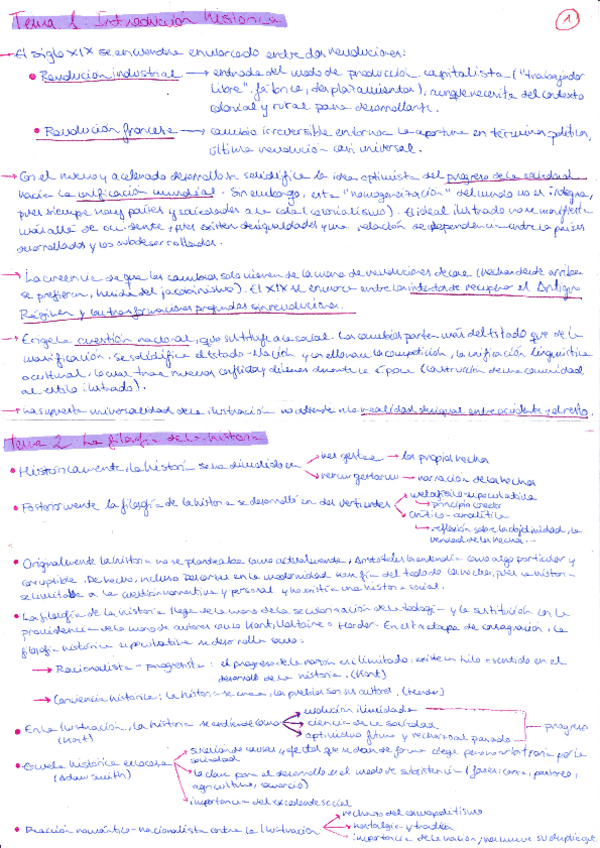 Tema 1. Introducción histórica
1
→ El siglo XIX se encuentra enmarcado entre dos revoluciones:
• Revolución industrial → entrada del modo de producción capitalista ("trabajador
libre", fábrica, desplazamientos), aunque necesita del contexto
colonial y rural para desarrollarse.
• Revolución francesa → cambio irreversible en torno a en términos políticos,
última revolución casi universal.
→ Con el nuevo y acelerado desarrollo se solidifica la idea optimista del progreso de la sociedad
hacia la unificación mundial. Sin embargo, esta "homogeneización" del mundo no es íntegra,
pues siempre hay países y sociedades a la cola (colonialismo). El ideal ilustrado no se manifiesta
más allá de occidente, pues existen desigualdades y una relación de dependencia entre los países
desarrollados y los subdesarrollados.
→ La creencia de que los cambios solo vienen de la mano de revoluciones decae (hechos desde arriba
se prefieren, huida del jacobinismo). El XIX se enmarca entre los intentos de recuperar el Antiguo
Régimen y las transformaciones profundas sin revoluciones.
→ Erige la cuestión nacional, que sustituye a la social. Los cambios parten más del Estado que de la
. Se solidifica el estado-nación y con ello la competición, la unificación lingüística
o cultural, lo cual trae nuevos conflictos y durante la época (construcción de una comunidad
al estilo ilustrado).
→ La supuesta universalidad de la ilustración no atiende a la realidad desigual entre occidente y el resto.
Tema 2. La filosofía de la historia
• Históricamente, la historia se ha dividido en → res gestae → los propios hechos
→ rerum gestarum → narración de los hechos
• Posteriormente la filosofía de la historia se desarrolló en dos vertientes → metafísico-especulativa
→ principio rector
→ crítico-analítica
→ reflexión sobre la objetividad, la
verdad de los hechos...
• Originalmente la historia no se planteaba como actualmente, Aristóteles la entendía como algo particular y
corruptible. De hecho, incluso Descartes en la modernidad del todo de , pues la historia
se limitaba a la cuestión narrativa y personal y no existía una historia social.
• La filosofía de la historia llega de la mano de la secularización de la teología y la sustitución con la
providencia de la mano de autores como Kant, Voltaire o Herder. En esta etapa de consagración, la
filosofía histórica especulativa se desarrolla como:
→ Racionalista-progresista: el progreso de la razón es ilimitado, existe un hilo o sentido en el
desarrollo de la historia. (Kant)
→ Conciencia histórica: la historia se crea, los pueblos son sus autores. (Herder)
• En la Ilustración, la historia se entiende como → evolución ilimitada
(Kant) → ciencia de la sociedad → progreso
→ optimismo futuro y rechazo al pasado
• Escuela histórica escocesa → sucesión de causas y efectos que se dan de forma ciega pero por la
(Adam Smith) sociedad
→ la clave para el desarrollo es el modo de subsistencia (fases: caza, pastoreo,
agricultura, comercio)
→ importancia del excedente social
• Reacción romántico-nacionalista contra la Ilustración → rechazo del cosmopolitismo
→ nostalgia y tradición
→ importancia de la nación,